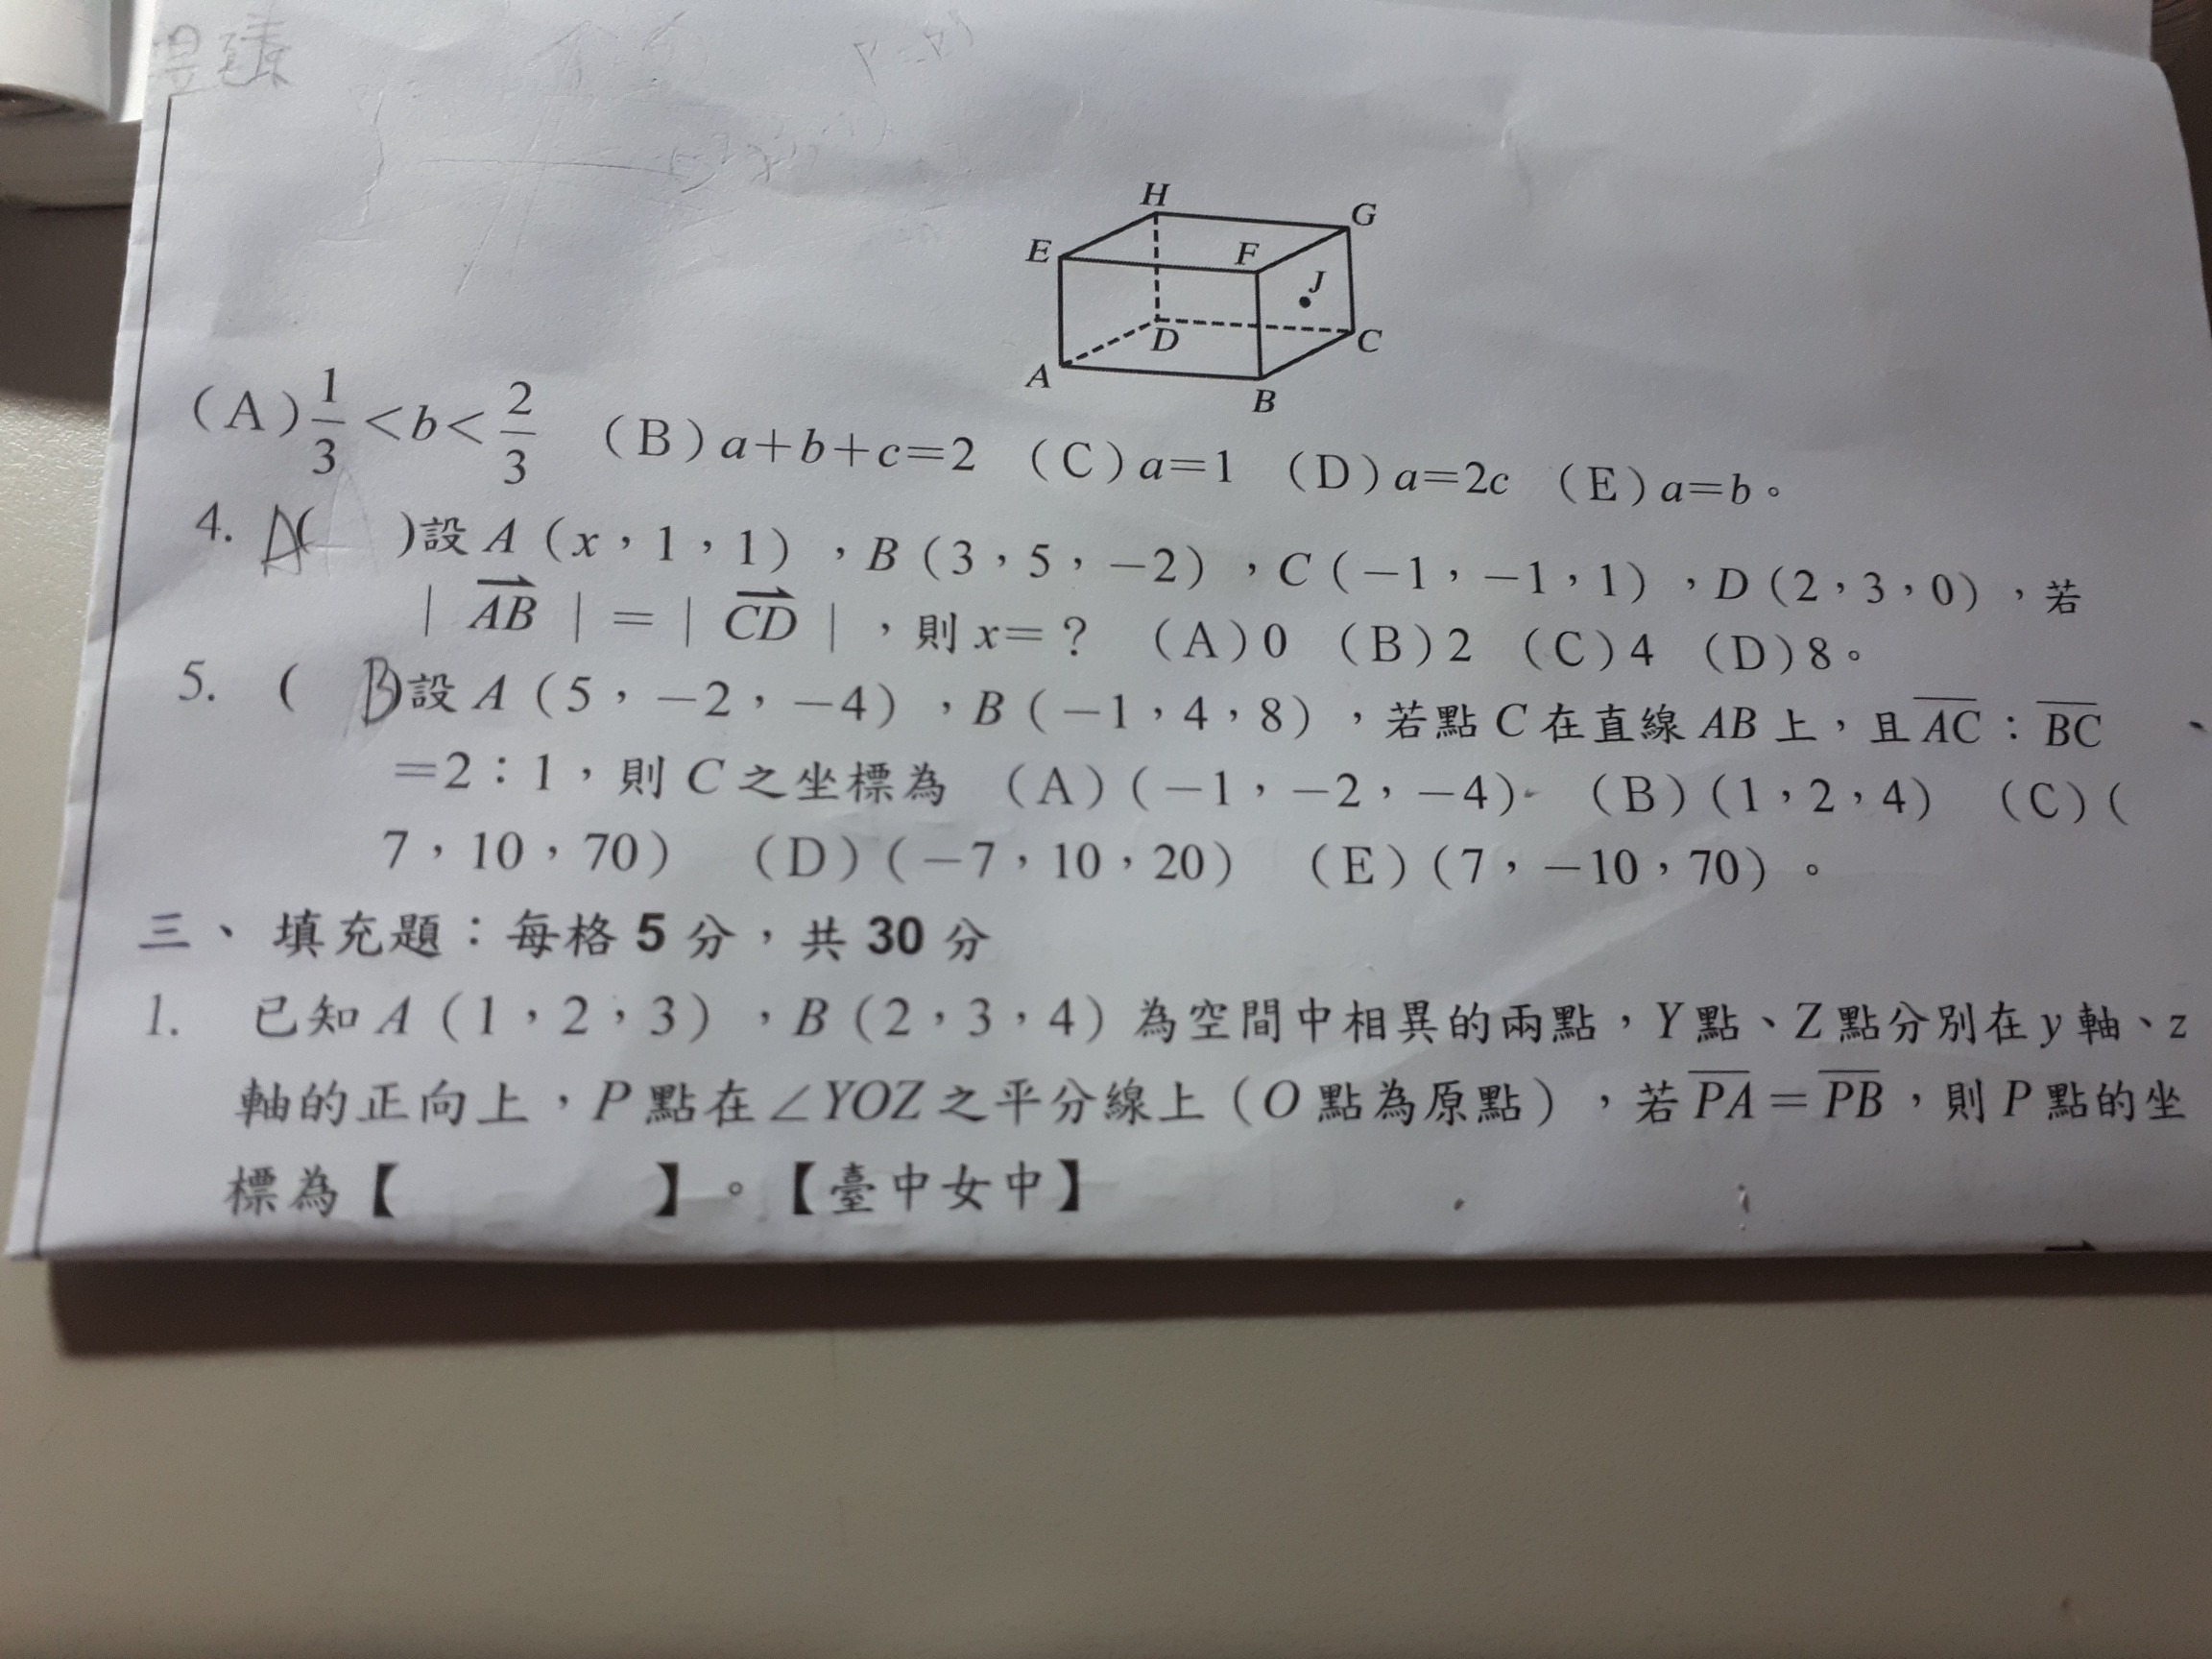 H
G
E
F
J
D
C
A
B
(A) 1/3 < b < 2/3 (B) a+b+c=2 (C) a=1 (D) a=2c (E) a=b。
4. A( )設 A(x,1,1),B(3,5,-2),C(-1,-1,1),D(2,3,0),若
| AB | = | CD |,則 x=? (A)0 (B)2 (C)4 (D)8。
5. ( B)設 A(5,-2,-4),B(-1,4,8),若點 C 在直線 AB 上,且 AC:BC
=2:1,則 C 之坐標為 (A)(-1,-2,-4) (B)(1,2,4) (C)(
7,10,70) (D)(-7,10,20) (E)(7,-10,70)。
三、填充題:每格 5 分,共 30 分
1. 已知 A(1,2,3),B(2,3,4)為空間中相異的兩點,Y 點、Z 點分別在 y 軸、z
軸的正向上,P 點在∠YOZ 之平分線上(O 點為原點),若 PA = PB,則 P 點的坐
標為【 】。【臺中女中】